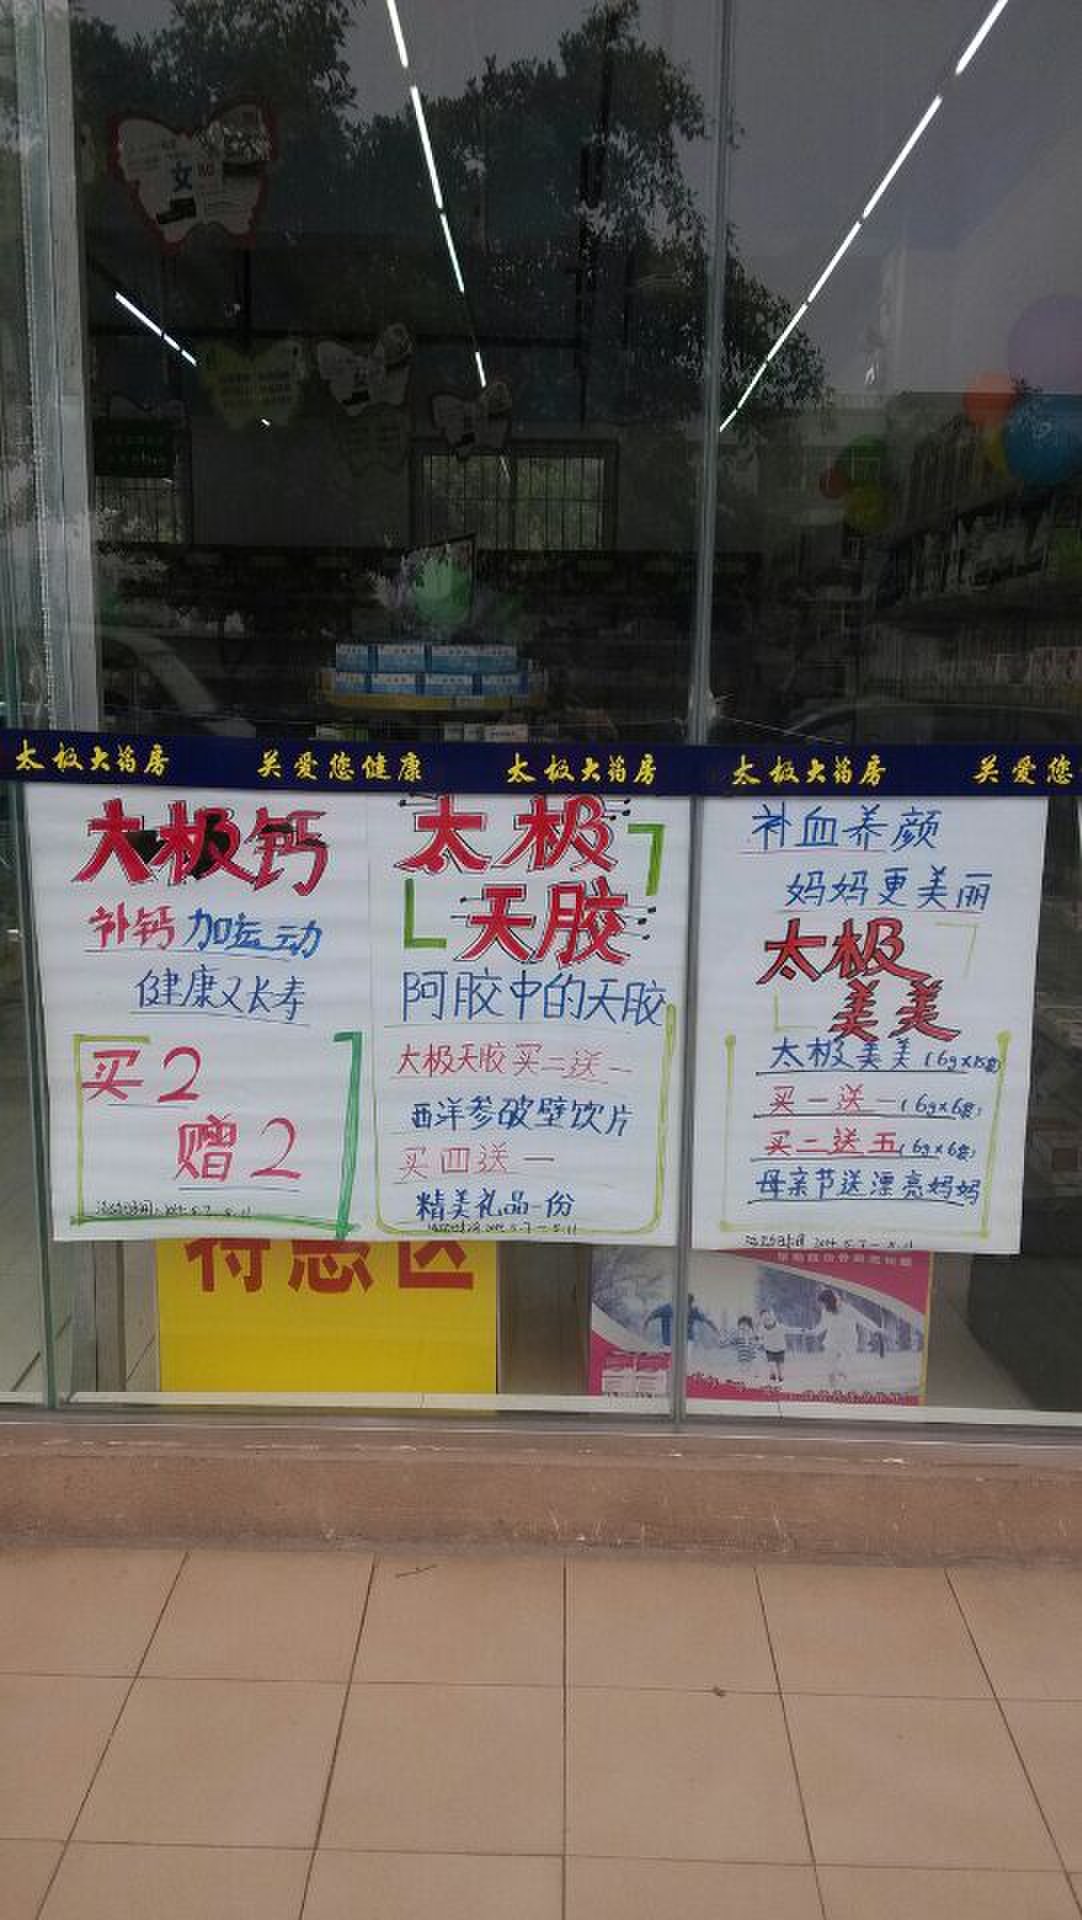 女
太极大药房 关爱您健康 太极大药房 太极大药房 关爱您
太极钙
补钙加运动
健康又长寿
买2
赠2
太极
天胶
阿胶中的天胶
太极天胶买二送一
西洋参破壁饮片
买四送一
精美礼品一份
补血养颜
妈妈更美丽
太极
美美
太极美美(6g×15袋)
买一送一(6g×6袋)
买二送五(6g×6袋)
母亲节送漂亮妈妈
活动时间:2014.5.7-5.11
特惠区